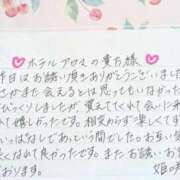 ホテルアロマの貴方様
昨日はお誘い頂きありがとうございました
さかまた会えるとは思ってもいなかった
びっくりしましたが、覚えててくれて会いに来
れて嬉しかったです。相変わらず楽しくて
いっぱなしであっという間でした。お互い
くなれて良かったです。またお誘いお
おります。
姫の